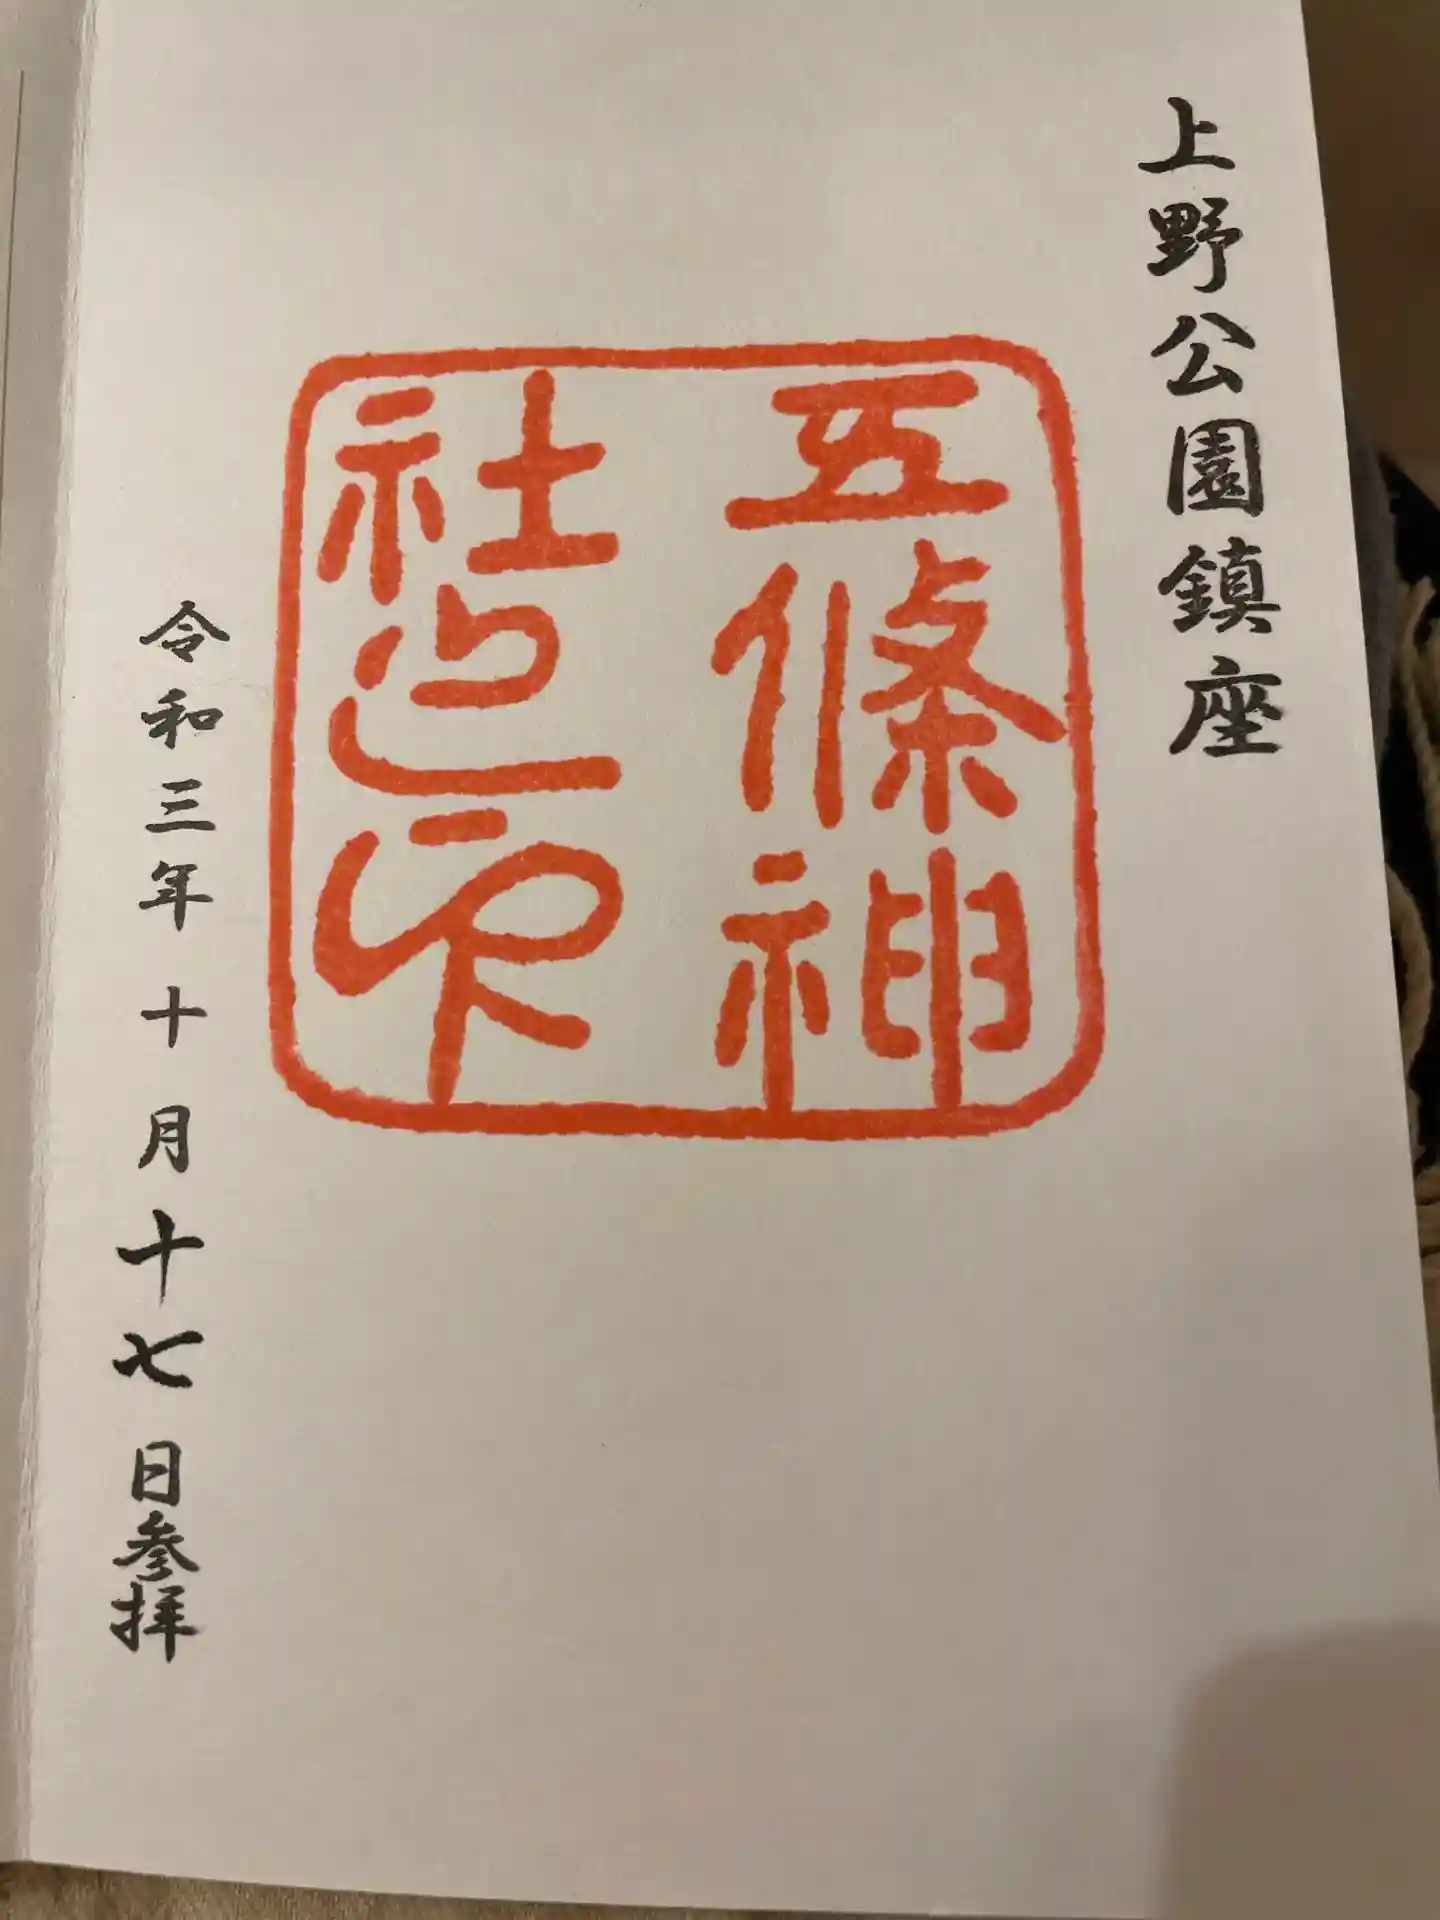 上野公園鎮座
五條神
社之印
令和三年十月十七日参拝